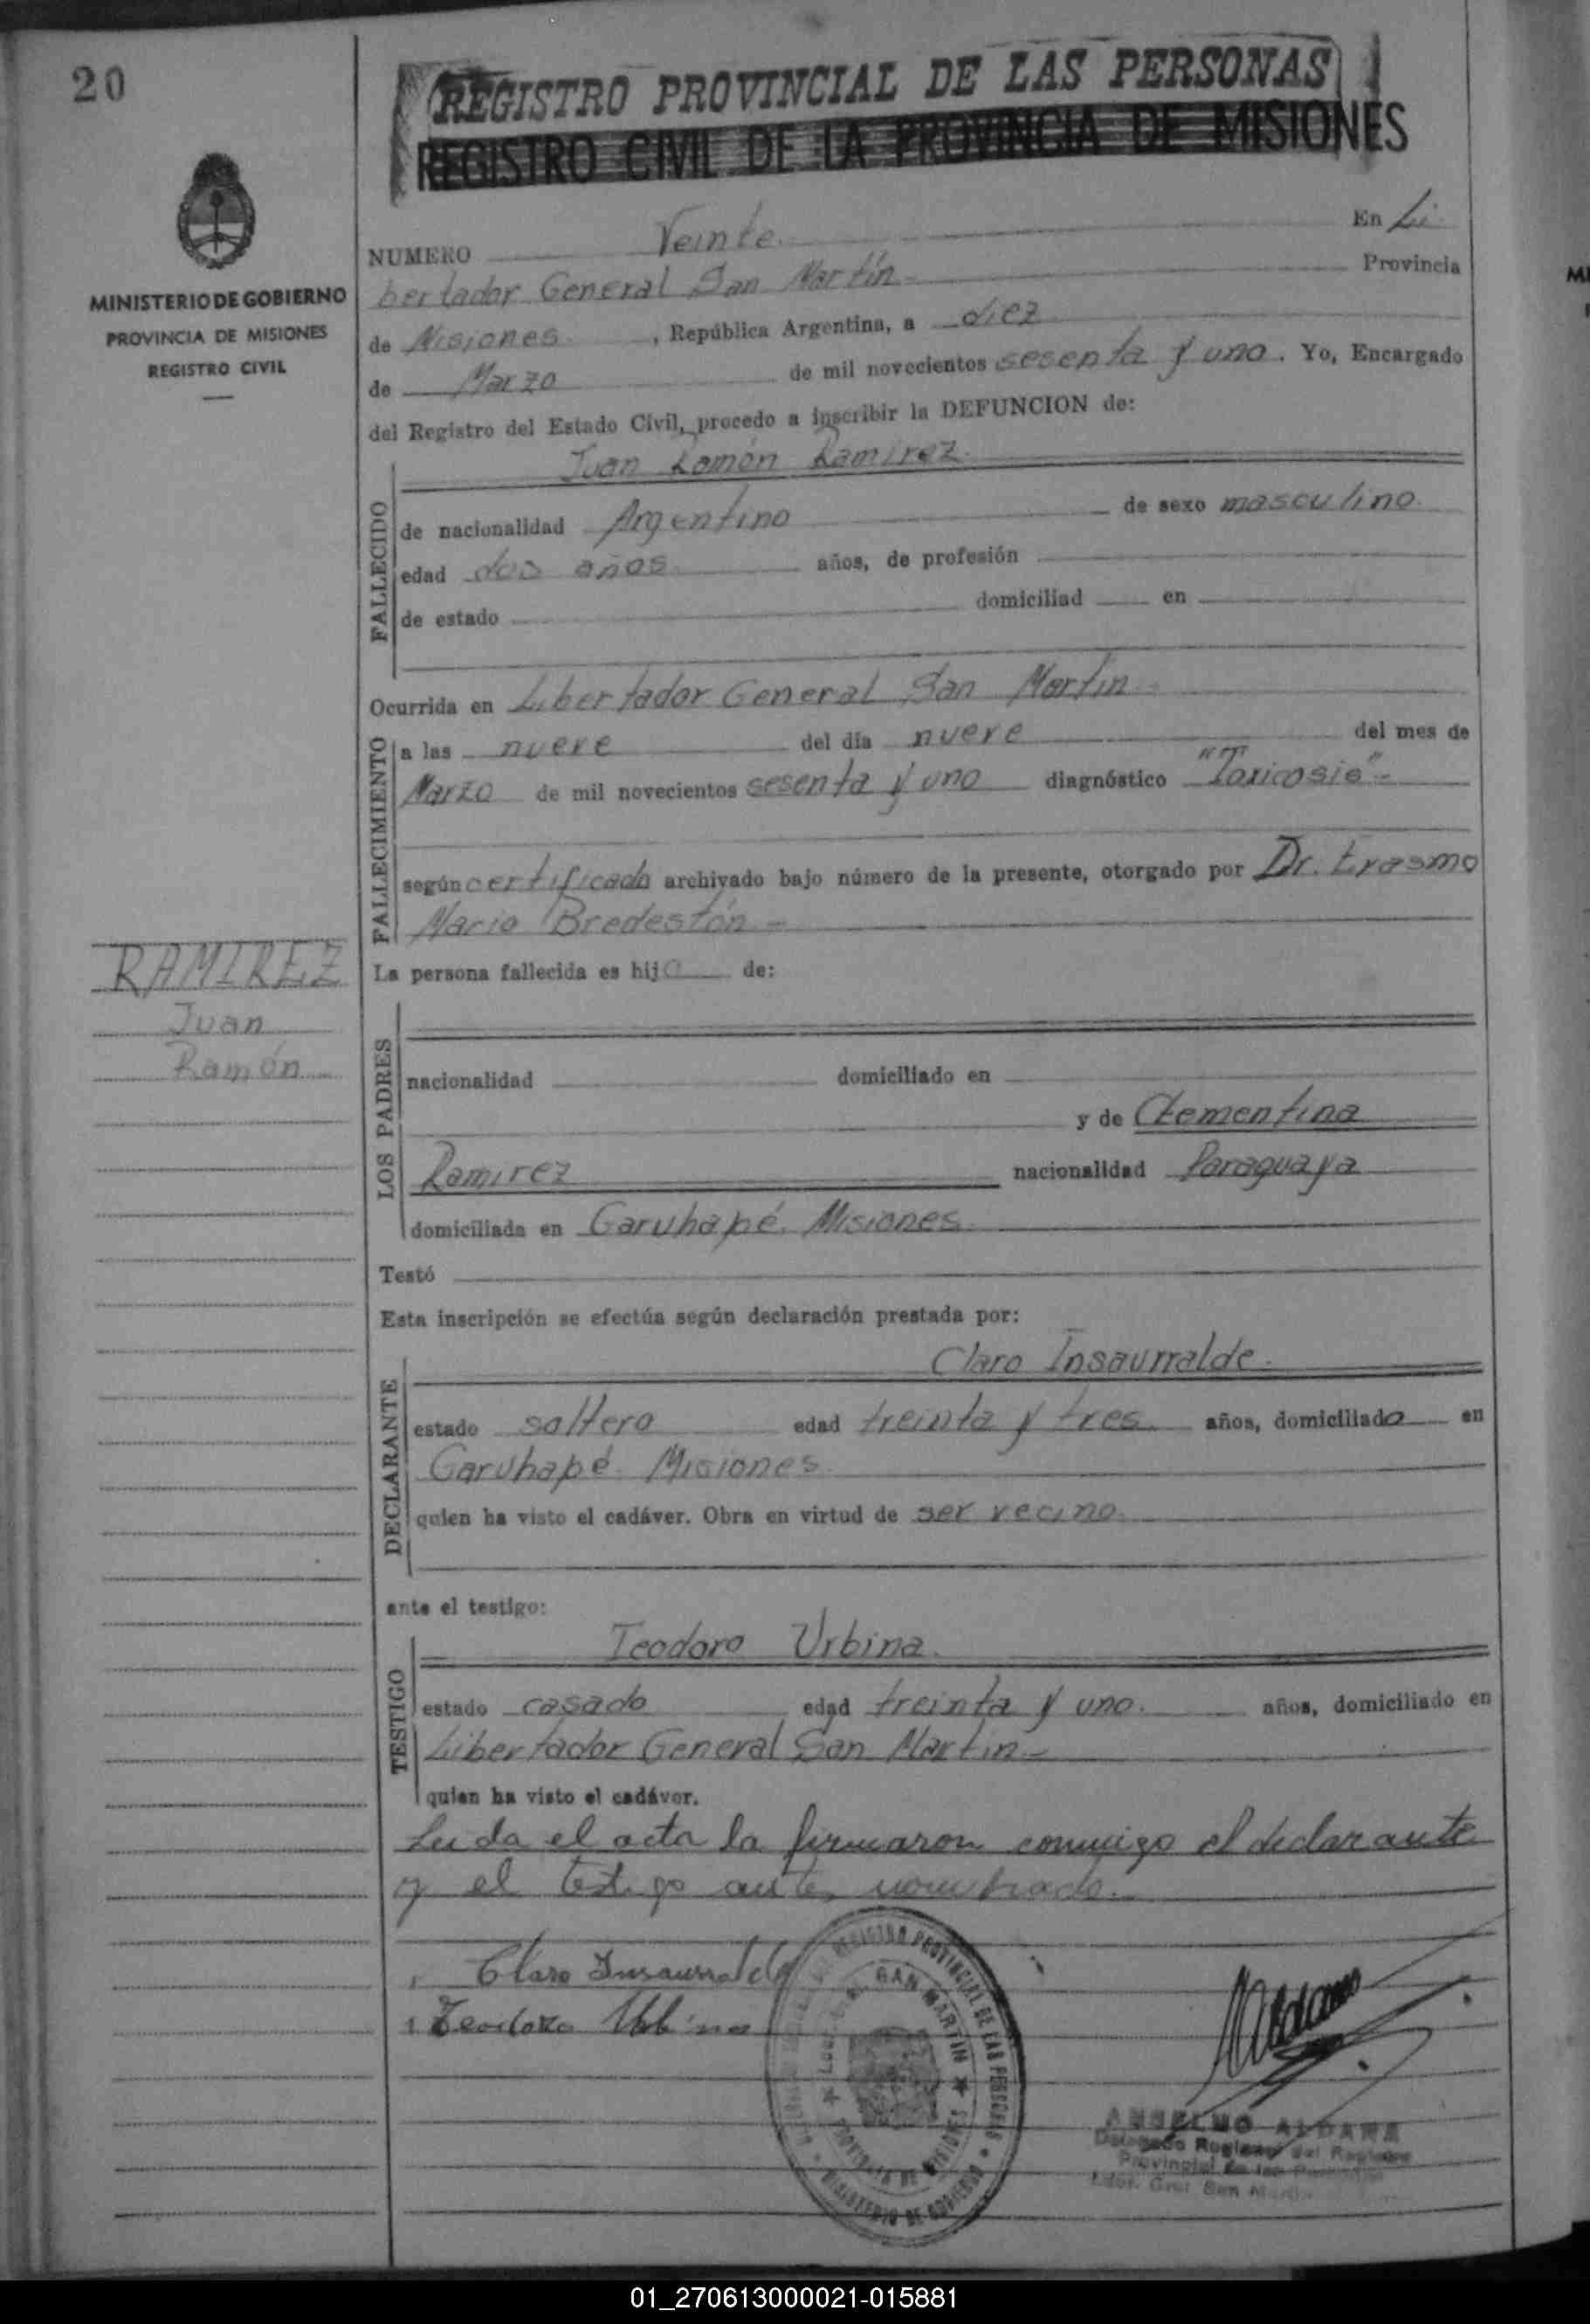 20
REGISTRO PROVINCIAL DE LAS PERSONAS
REGISTRO CIVIL DE LA PROVINCIA DE MISIONES
MINISTERIO DE GOBIERNO
PROVINCIA DE MISIONES
REGISTRO CIVIL
NUMERO Veinte. En Li
bertador General San Martín - Provincia
de Misiones. , República Argentina, a diez
de Marzo de mil novecientos sesenta y uno. Yo, Encargado
del Registro del Estado Civil, procedo a inscribir la DEFUNCION de:
Juan Ramón Ramirez.
FALLECIDO
de nacionalidad Argentino de sexo masculino.
edad dos años años, de profesión
de estado domiciliad en
Ocurrida en Libertador General San Martin -
FALLECIMIENTO
a las nueve del día nueve del mes de
Marzo de mil novecientos sesenta y uno diagnóstico "Toxicosis" -
según certificado archivado bajo número de la presente, otorgado por Dr. Erasmo
Mario Bredestón -
RAMIREZ
Juan
Ramón
La persona fallecida es hijo de:
LOS PADRES
nacionalidad domiciliado en
y de Clementina
Ramirez nacionalidad Paraguaya
domiciliada en Garuhapé. Misiones.
Testó
Esta inscripción se efectúa según declaración prestada por:
Claro Insaurralde.
DECLARANTE
estado soltero edad treinta y tres. años, domiciliado en
Garuhapé. Misiones.
quien ha visto el cadáver. Obra en virtud de ser vecino.
ante el testigo:
Teodoro Urbina.
TESTIGO
estado casado edad treinta y uno. años, domiciliado en
Libertador General San Martin -
quien ha visto el cadáver.
Leída el acta la firmaron conmigo el declarante
y el testigo antes nombrado.
Claro Insaurralde
Teodoro Urbina
REGISTRO PROVINCIAL DE LAS PERSONAS
SAN MARTIN
PROVINCIA DE MISIONES
MINISTERIO DE GOBIERNO
ANSELMO ALDANA
Delegado Regional del Registro
Provincial de las Personas
Ldor. Gral San Martin
01_270613000021-015881